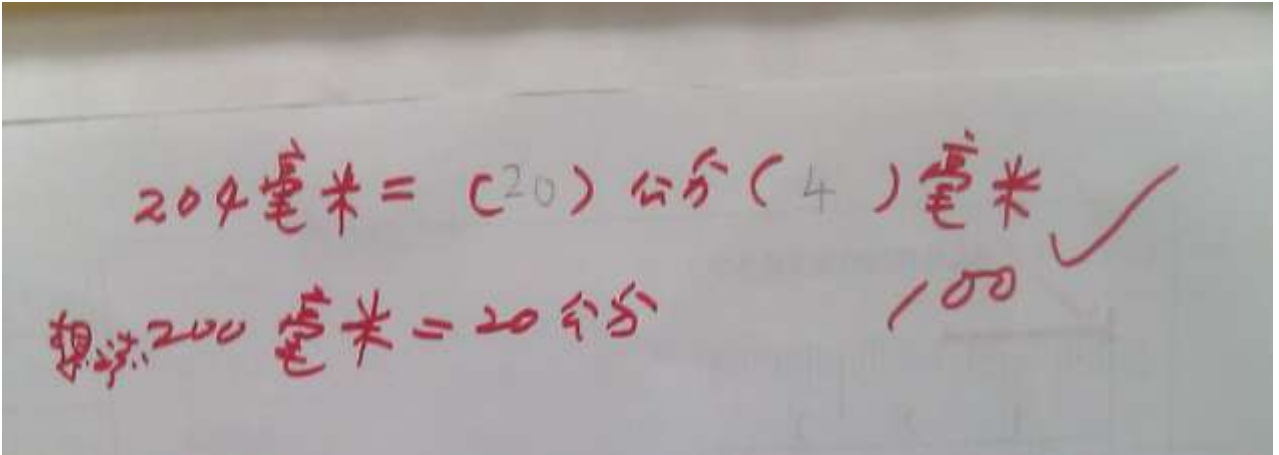 204毫米=(20)公分(4)毫米
100
200毫米=20公分